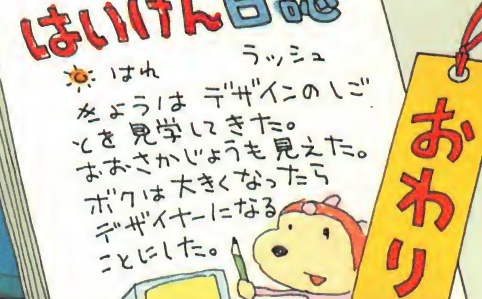 はいけん日記
はれ ラッシュ
きょうは デザインのしご
とを見学してきた。
おおさかじょうも見えた。
ボクは大きくなったら
デザイナーになる
ことにした。
おわり